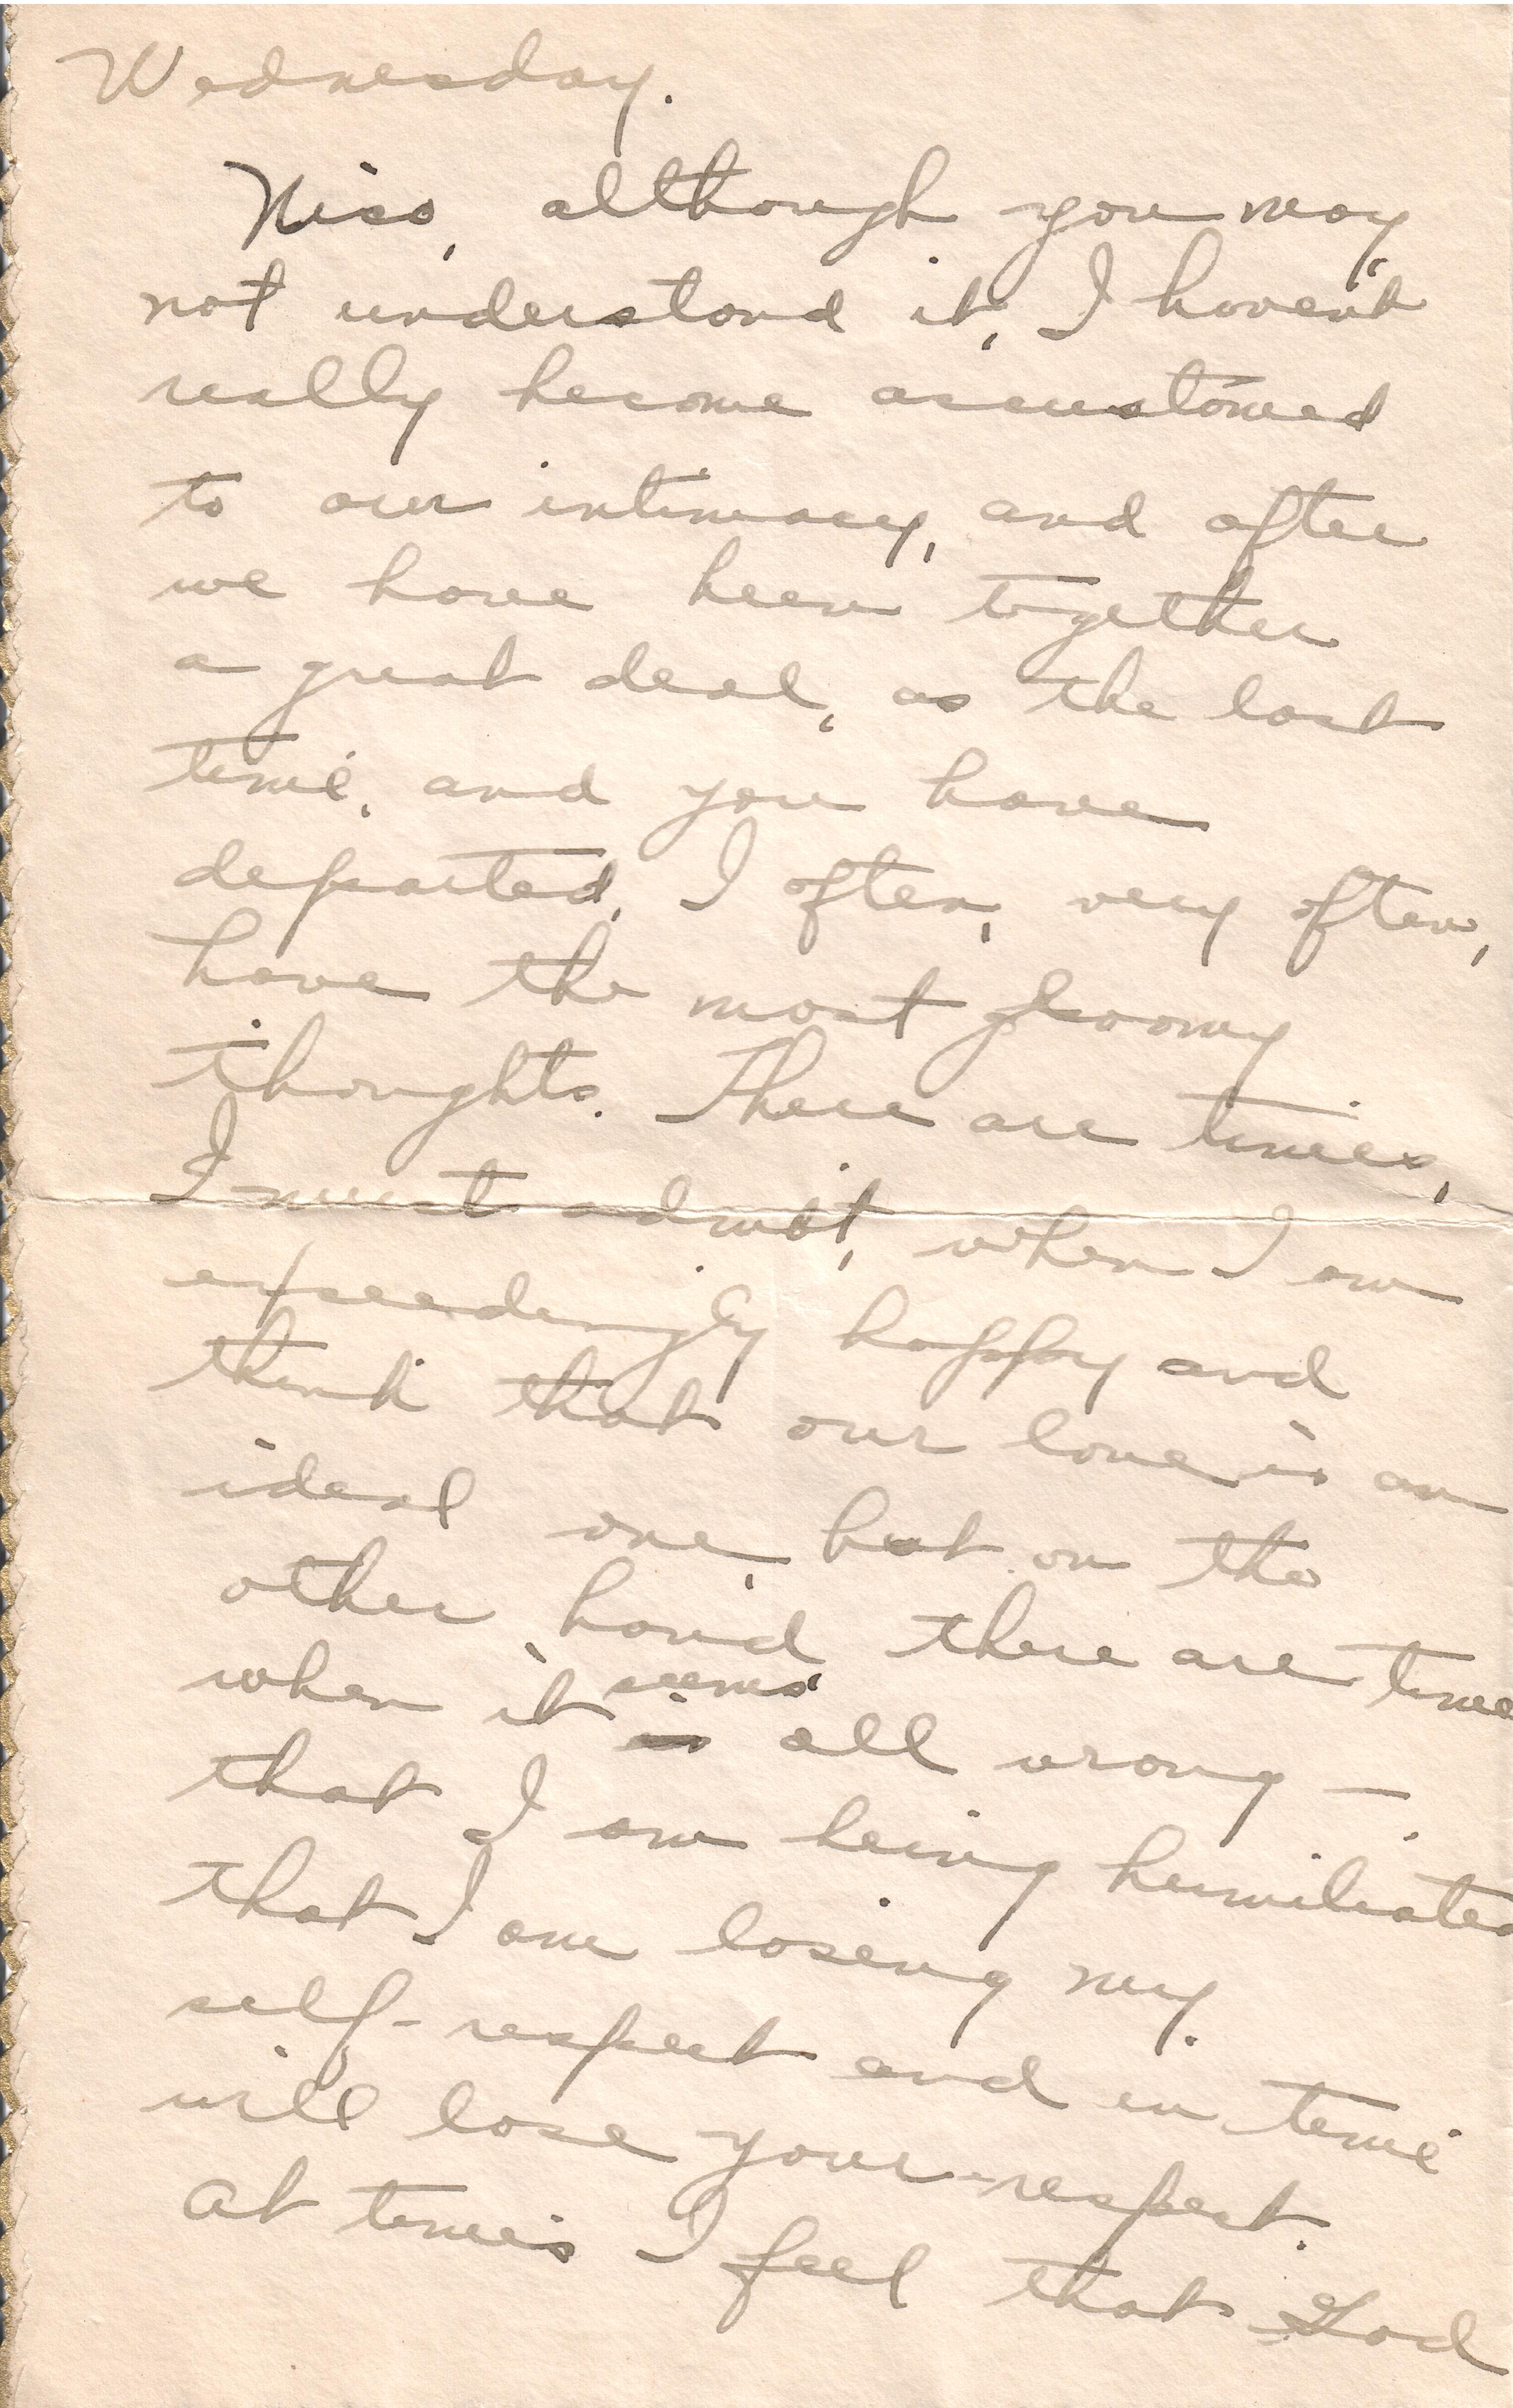 Wednesday.
Nico, although you may
not understand it, I haven't
really become accustomed
to our intimacy, and after
we have been together
a great deal, as the last
time, and you have
departed, I often, very often,
have the most gloomy
thoughts. There are times,
I must admit, when I am
exceedingly happy and
think that our love is an
ideal one, but on the
other hand there are time
when it seems all wrong —
that I am being humiliated
that I am losing my
self-respect and in time
will lose your respect.
At times I feel that God